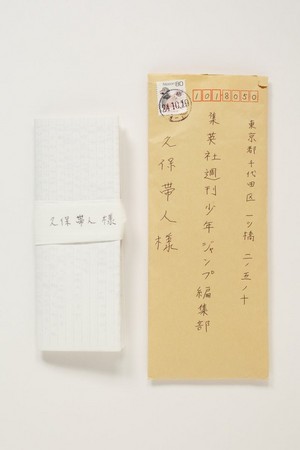 久保帯人様
1018050
東京都千代田区一ツ橋二ノ五ノ十
集英社週刊少年ジャンプ編集部
久保帯人様